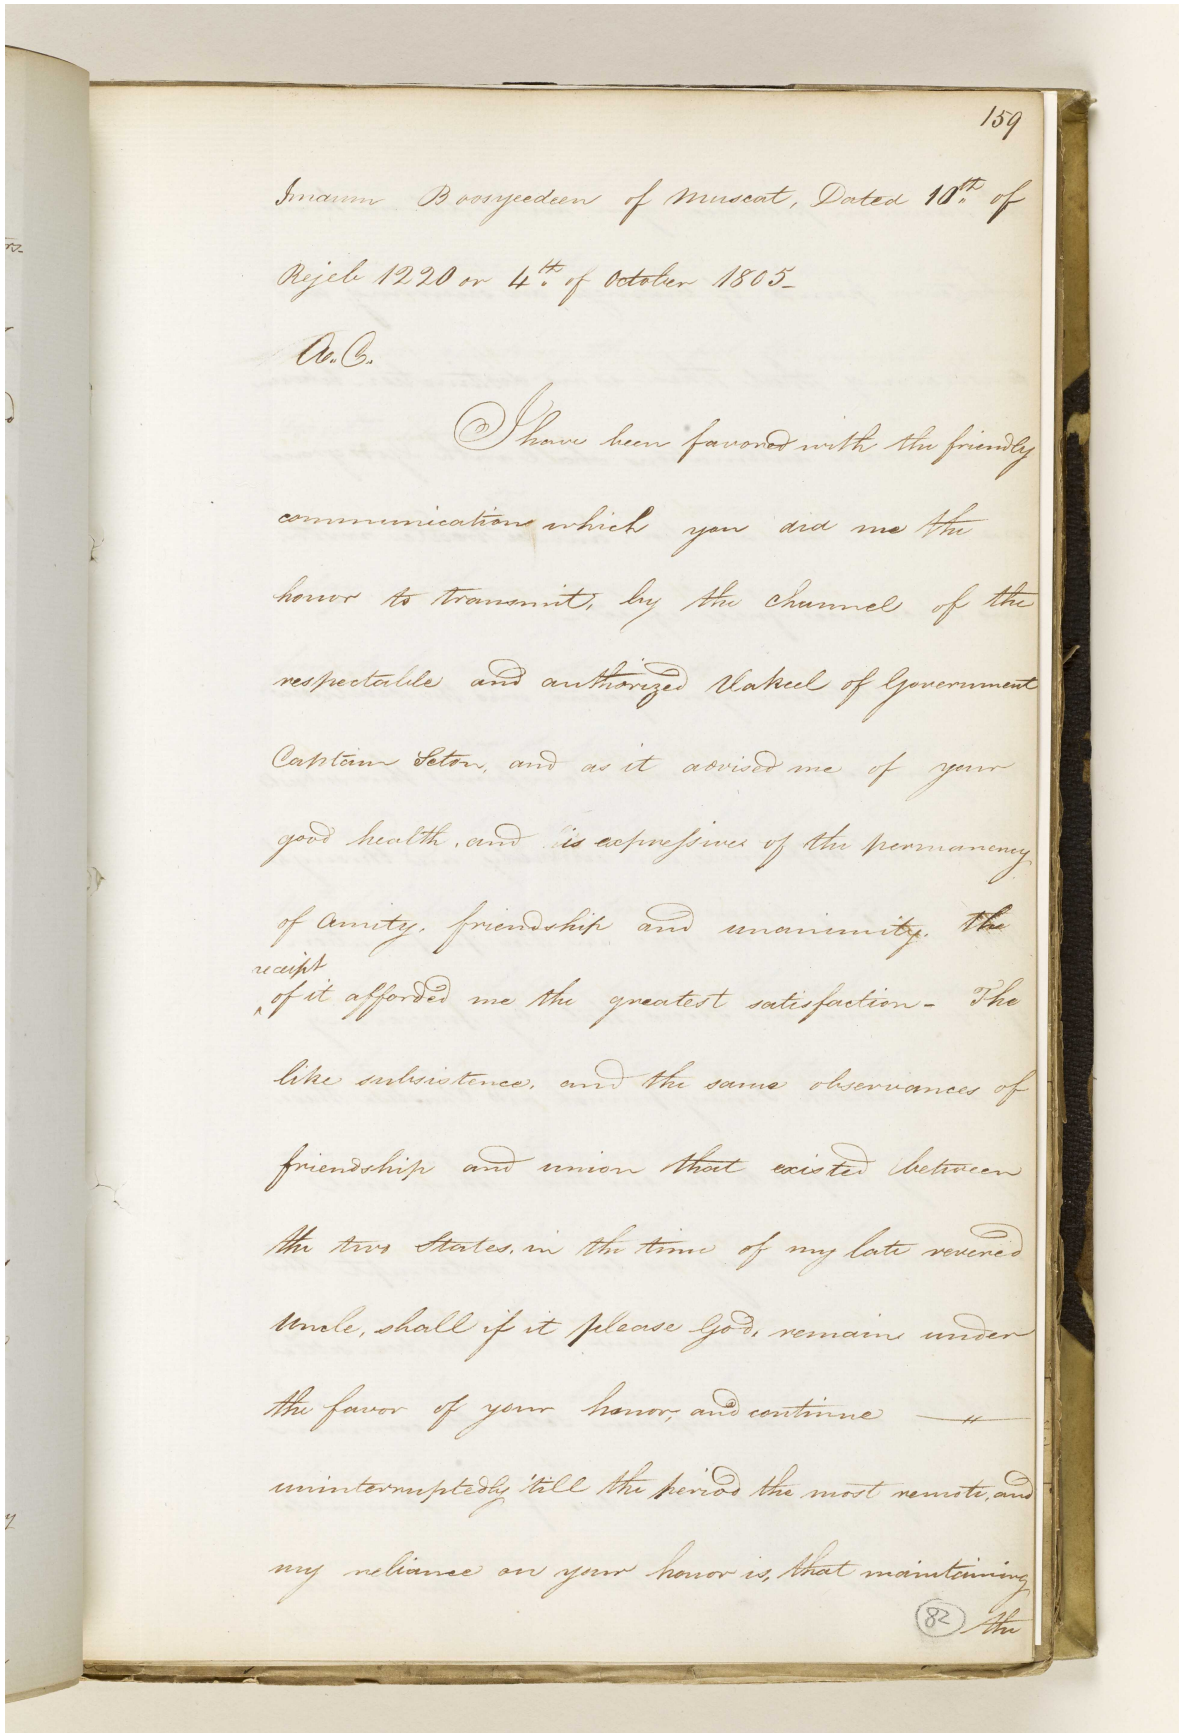 159
Imaum Boosyeedeen of Muscat, Dated 10th. of
Rejeb 1220 or 4th. of October 1805_
A.C.
I have been favored with the friendly
communication which you did me the
honor to transmit, by the channel of the
respectable and authorized Vakeel of Government
Captain Seton, and as it advised me of your
good health, and is expressive of the permanency
of amity, friendship and unanimity. the
receipt
of it afforded me the greatest satisfaction - The
like subsistence, and the same observances of
friendship and union that existed between
the two States, in the time of my late revered
Uncle, shall if it please God, remain under
the favor of your honor, and continue — " —
uninterruptedly 'till the period the most remote, and
my reliance on your honor is, that maintaining
82 the